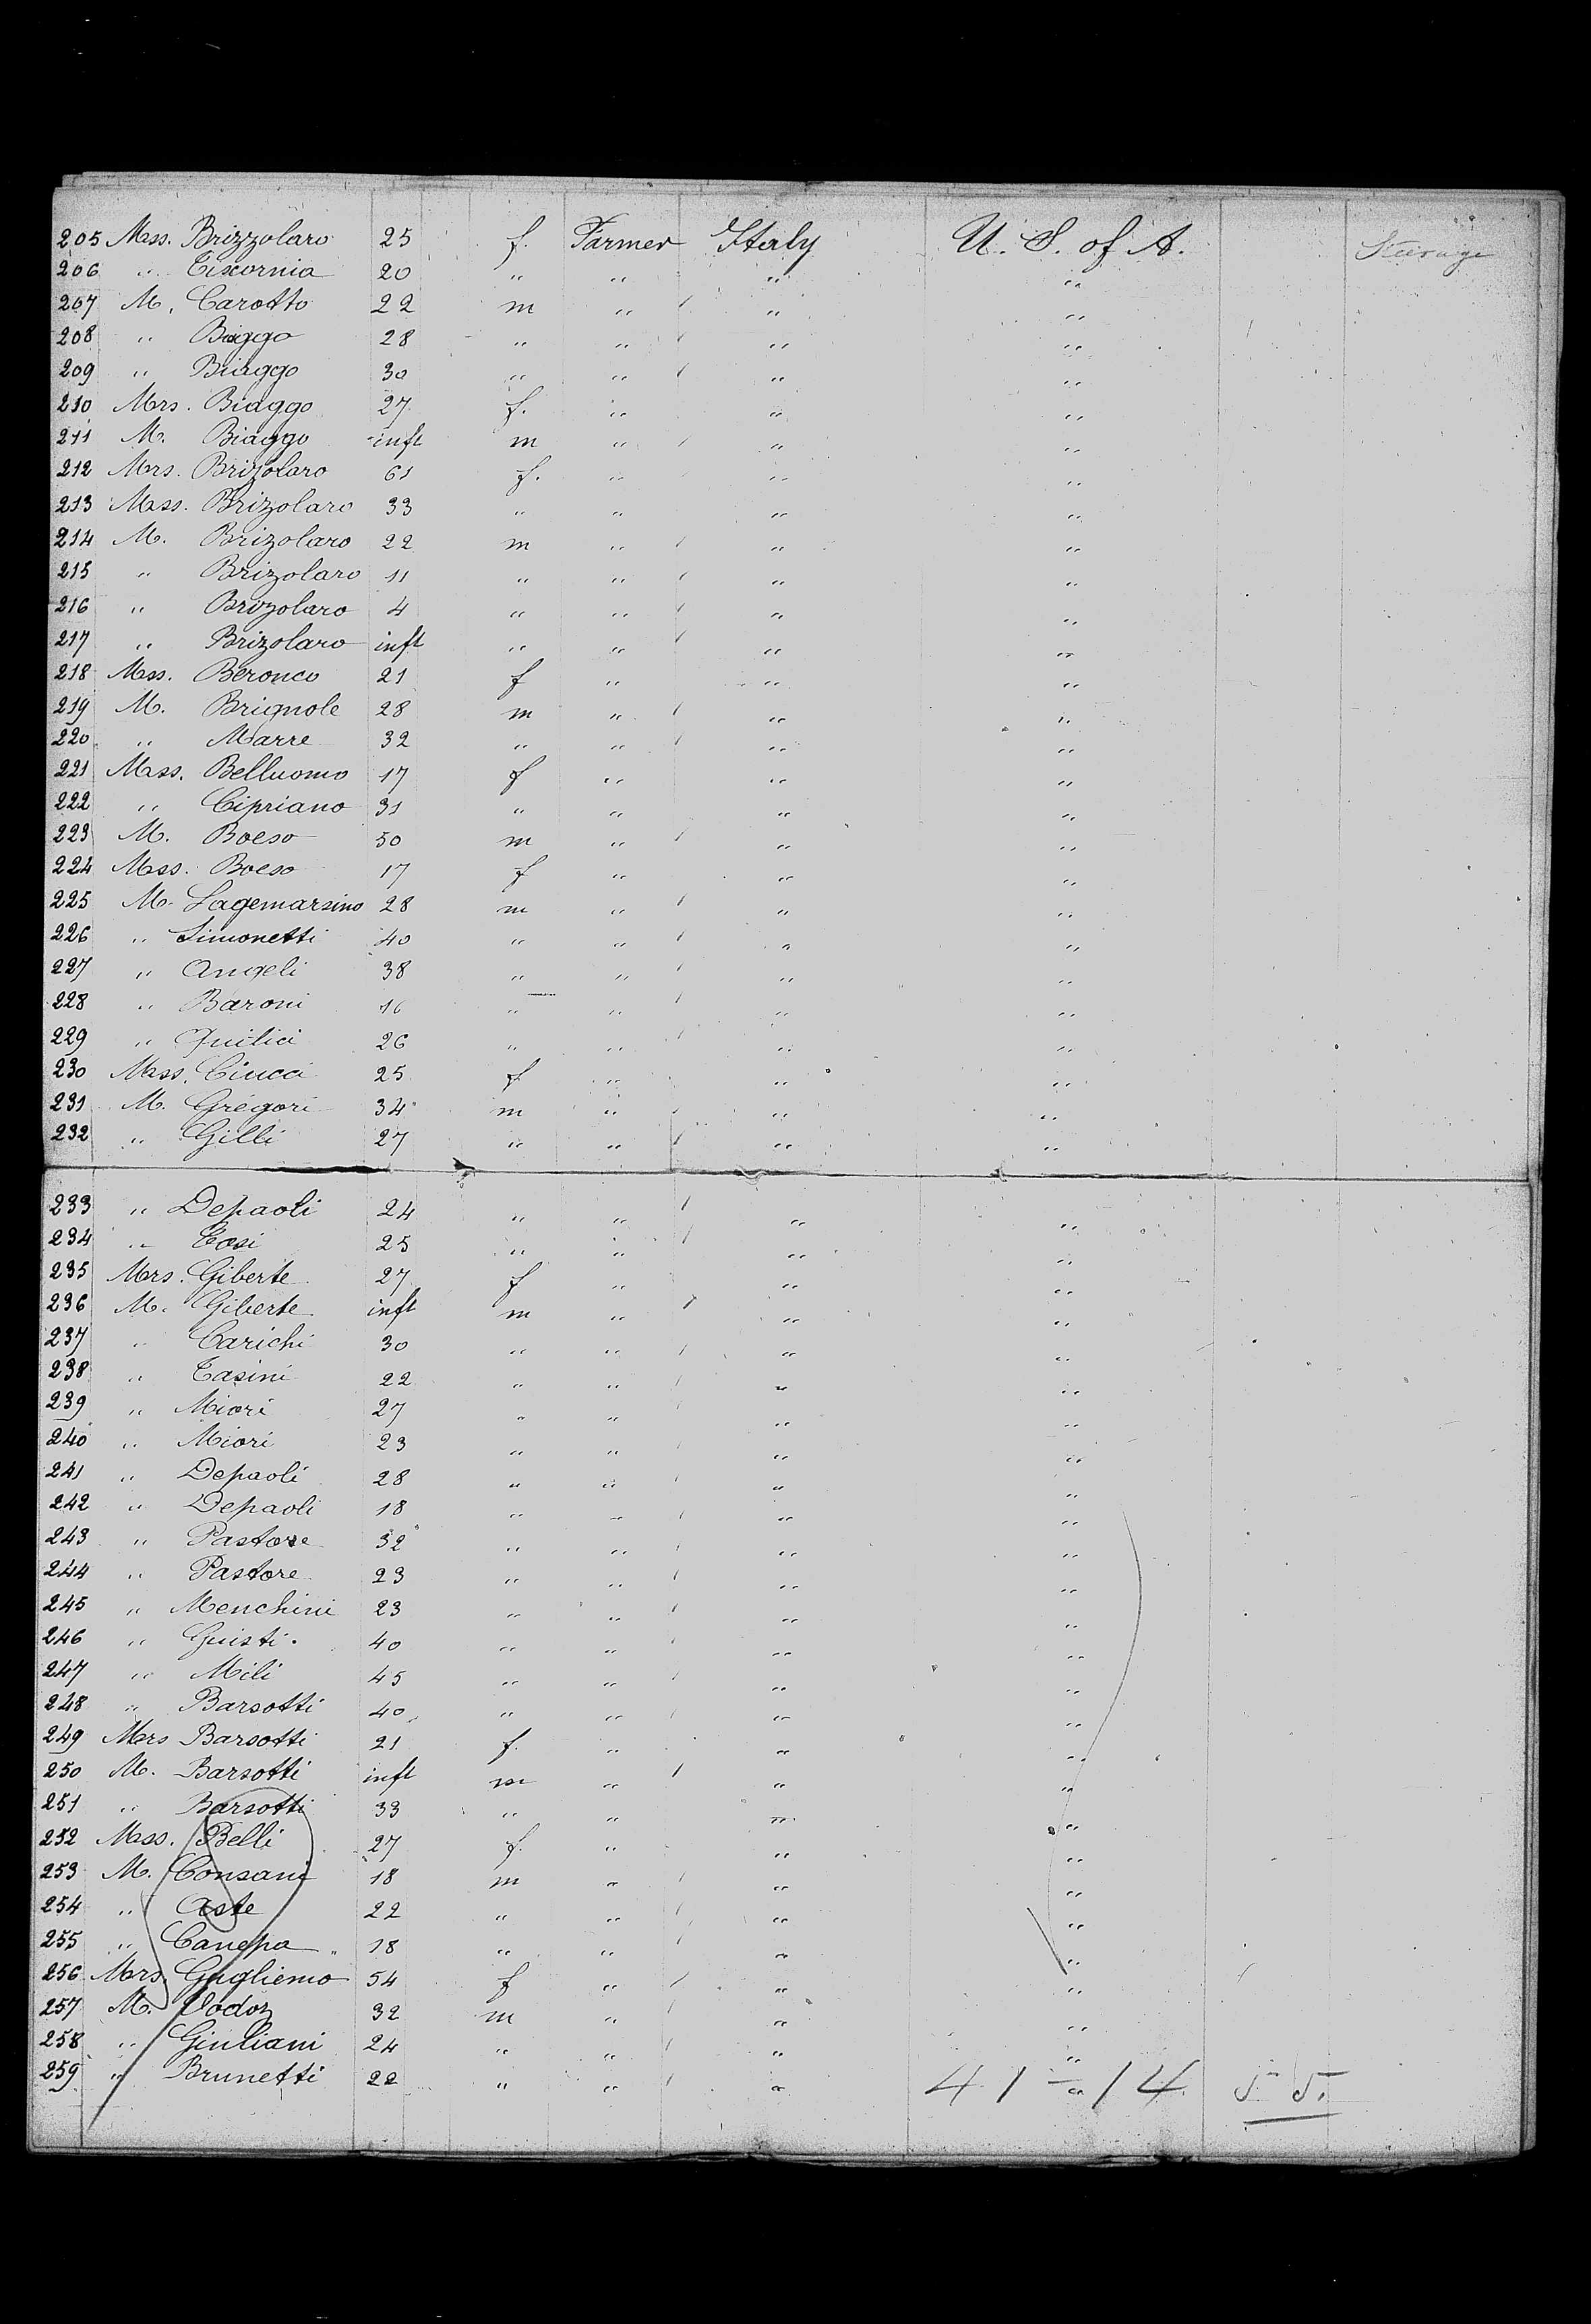 205 Mss. Brizzolaro 25 f. Farmer Italy U. S. of A. Steerage
206 " Tiscornia 20 " " " "
207 M. Carotto 22 m " " "
208 " Biaggo 28 " " " "
209 " Biaggo 30 " " " "
210 Mrs. Biaggo 27 f. " " "
211 M. Biaggo inft m " " "
212 Mrs. Brizolaro 61 f. " " "
213 Mss. Brizolaro 33 " " " "
214 M. Brizolaro 22 m " " "
215 " Brizolaro 11 " " " "
216 " Brizolaro 4 " " " "
217 " Brizolaro inft " " " "
218 Mss. Beronco 21 f " " "
219 M. Brignole 28 m " " "
220 " Marre 32 " " " "
221 Mss. Belluomo 17 f " " "
222 " Cipriano 31 " " " "
223 M. Boeso 50 m " " "
224 Mss. Boeso 17 f " " "
225 M. Lagemarsino 28 m " " "
226 " Simonetti 40 " " " "
227 " Angeli 38 " " " "
228 " Baroni 16 " " " "
229 " Quilici 26 " " " "
230 Mss. Ciucci 25 f " " "
231 M. Gregori 34 m " " "
232 " Gilli 27 " " " "
233 " Depaoli 24 " " " "
234 " Tosi 25 " " " "
235 Mrs. Giberte 27 f " " "
236 M. Giberte inft m " " "
237 " Carichi 30 " " " "
238 " Tasini 22 " " " "
239 " Miori 27 " " " "
240 " Miori 23 " " " "
241 " Depaoli 28 " " " "
242 " Depaoli 18 " " " "
243 " Pastore 32 " " " "
244 " Pastore 23 " " " "
245 " Menchini 23 " " " "
246 " Guisti. 40 " " " "
247 " Mili 45 " " " "
248 " Barsotti 40 " " " "
249 Mrs Barsotti 21 f. " " "
250 M. Barsotti inft m " " "
251 " Barsotti 33 " " " "
252 Mss. Belli 27 f. " " "
253 M. Consani 18 m " " "
254 " Aste 22 " " " "
255 " Canepa 18 " " " "
256 Mrs. Gugliemo 54 f " " "
257 M. Vodoz 32 m " " "
258 " Giuliani 24 " " " "
259 " Brunetti 22 " " " "
41 - 14 55.